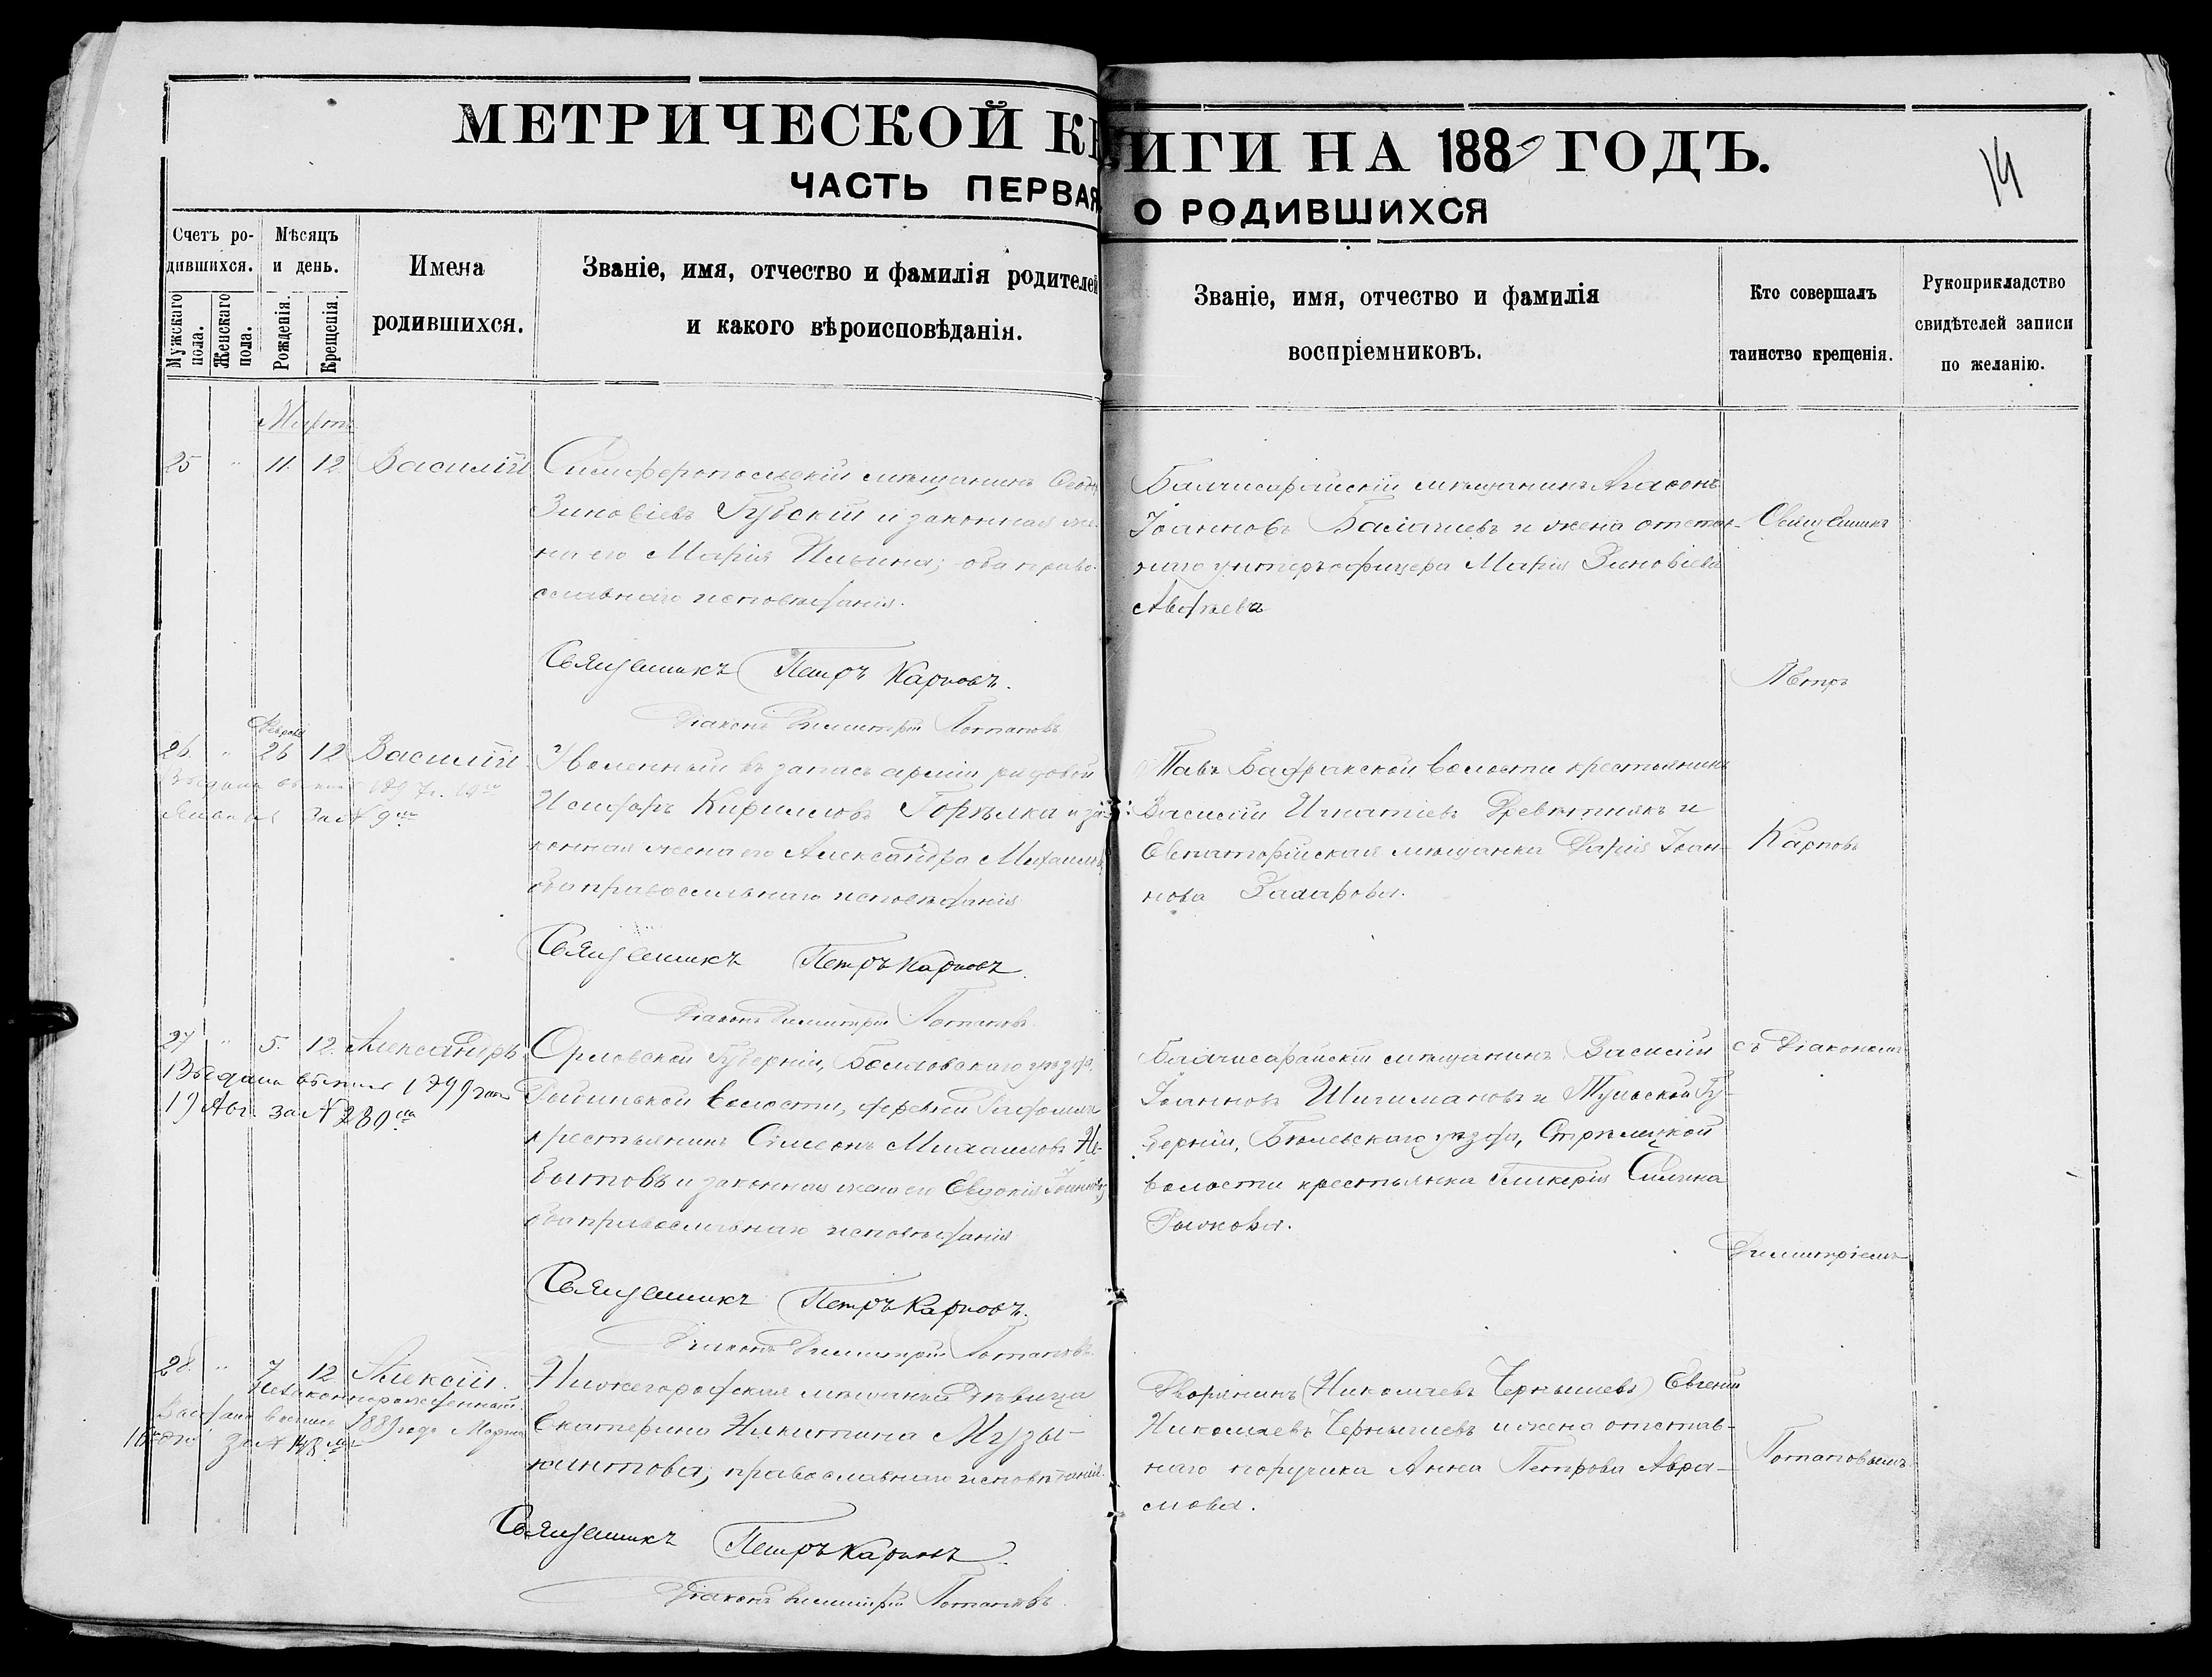 МЕТРИЧЕСКОЙ КНИГИ НА 1889 ГОДЪ.
14
ЧАСТЬ ПЕРВАЯ О РОДИВШИХСЯ
Счетъ ро-
дившихся.
Мужскаго
пола.
Женскаго
пола.
Мѣсяцъ
и день.
Рожденія.
Крещенія.
Имена
родившихся.
Званіе, имя, отчество и фамилія родителей
и какого вѣроисповѣданія.
Званіе, имя, отчество и фамилія
воспріемниковъ.
Кто совершалъ
таинство крещенія.
Рукоприкладство
свидѣтелей записи
по желанію.
Мартъ
25 " 11. 12. Василій
Симферопольскій мѣщанинъ
Зиновіевъ Губскій и законная же-
на его Марія Ильина; оба право-
славнаго исповѣданія.
Священникъ Петръ Карповъ.
Діаконъ Димитрій Потаповъ
Бахчисарайскій мѣщанинъ
Іоанновъ и жена отстав-
наго унтеръ-офицера Марія Зиновіева
Авдѣева
Священникъ
Петръ
Февраль
26. " 26 12 Василій
за № 9
Уволенный въ запасъ арміи рядовой
Исидоръ Кирилловъ Горѣлка и за-
конная жена его Александра Михайлова,
оба православнаго исповѣданія
Священникъ Петръ Карповъ.
Діаконъ Димитрій Потаповъ
Тавъ Бадракской волости крестьянинъ
Василій Игнатіевъ Древетнякъ и
Евпаторійская мѣщанка Дарія Іоан-
нова Захарова.
Карповъ
27 " 5. 12. Александръ
Выдана выпись 1899 года
19 Авг. за № 280
Орловской Губерніи, Болховскаго уѣзда,
волости, деревни
крестьянинъ Сімеонъ Михаиловъ Не-
бытовъ и законная жена его Евдокія Іоаннова,
оба православнаго исповѣданія
Священникъ Петръ Карповъ.
Діаконъ Димитрій Потаповъ
Бахчисарайскій мѣщанинъ Василій
Іоанновъ Шишмановъ и Тульской Гу-
берніи, Бѣлевскаго уѣзда, Стрѣлецкой
волости крестьянка Гликерія Силина
Рычкова.
съ Діакономъ
Димитріемъ
28. " 7 12. Алексій.
Незаконнорожденный.
Выдана выпись 1889 года Марта
за №
Нижегородская мѣщанка дѣвица
Екатерина Никитина Музы-
кантова, православнаго исповѣданія.
Священникъ Петръ Карповъ.
Діаконъ Димитрій Потаповъ
Дворянинъ (Николаевъ Чернышевъ) Евгеній
Николаевъ Чернышевъ и жена отстав-
наго поручика Анна Петрова Авра-
мова.
Потаповымъ